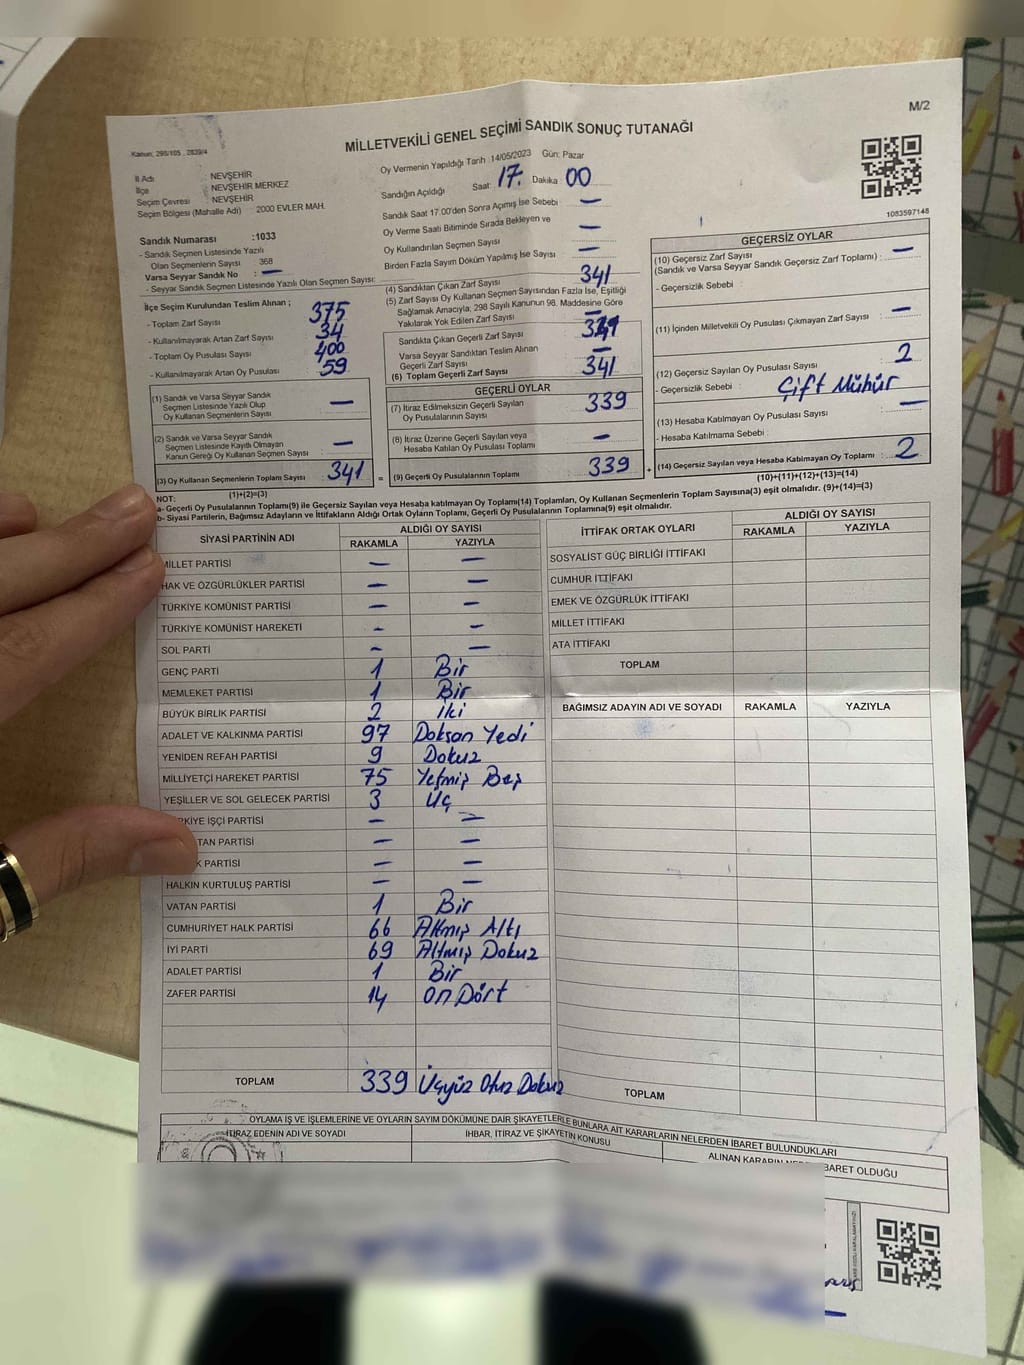 M/2
MİLLETVEKİLİ GENEL SEÇİMİ SANDIK SONUÇ TUTANAĞI
Kanun: 298/105 , 2839/4
İl Adı : NEVŞEHİR
İlçe : NEVŞEHİR MERKEZ
Seçim Çevresi : NEVŞEHİR
Seçim Bölgesi (Mahalle Adı) : 2000 EVLER MAH.
Oy Vermenin Yapıldığı Tarih 14/05/2023 Gün: Pazar
Sandığın Açıldığı Saat: 17. Dakika 00
Sandık Saat 17.00'den Sonra Açımış İse Sebebi : —
Oy Verme Saati Bitiminde Sırada Bekleyen ve
Oy Kullandırılan Seçmen Sayısı : —
Birden Fazla Sayım Döküm Yapılmış İse Sayısı : —
1083597148
Sandık Numarası :1033
- Sandık Seçmen Listesinde Yazılı
Olan Seçmenlerin Sayısı 368
Varsa Seyyar Sandık No : —
- Seyyar Sandık Seçmen Listesinde Yazılı Olan Seçmen Sayısı:
İlçe Seçim Kurulundan Teslim Alınan ;
- Toplam Zarf Sayısı : 375
- Kullanılmayarak Artan Zarf Sayısı : 34
- Toplam Oy Pusulası Sayısı : 400
- Kullanılmayarak Artan Oy Pusulası : 59
(1) Sandık ve Varsa Seyyar Sandık
Seçmen Listesinde Yazılı Olup
Oy Kullanan Seçmenlerin Sayısı : —
(2) Sandık ve Varsa Seyyar Sandık
Seçmen Listesinde Kayıtlı Olmayan
Kanun Gereği Oy Kullanan Seçmen Sayısı : —
(3) Oy Kullanan Seçmenlerin Toplam Sayısı : 341
(1)+(2)=(3)
(4) Sandıktan Çıkan Zarf Sayısı : 341
(5) Zarf Sayısı Oy Kullanan Seçmen Sayısından Fazla İse, Eşitliği
Sağlamak Amacıyla; 298 Sayılı Kanunun 98. Maddesine Göre
Yakılarak Yok Edilen Zarf Sayısı : —
Sandıkta Çıkan Geçerli Zarf Sayısı :
Varsa Seyyar Sandıktan Teslim Alınan
Geçerli Zarf Sayısı : —
(6) Toplam Geçerli Zarf Sayısı : 341
GEÇERLİ OYLAR
(7) İtiraz Edilmeksizin Geçerli Sayılan
Oy Pusulalarının Sayısı : 339
(8) İtiraz Üzerine Geçerli Sayılan veya
Hesaba Katılan Oy Pusulası Toplamı : —
= (9) Geçerli Oy Pusulalarının Toplamı : 339 +
GEÇERSİZ OYLAR
(10) Geçersiz Zarf Sayısı : —
(Sandık ve Varsa Seyyar Sandık Geçersiz Zarf Toplamı)
- Geçersizlik Sebebi :
(11) İçinden Milletvekili Oy Pusulası Çıkmayan Zarf Sayısı : —
(12) Geçersiz Sayılan Oy Pusulası Sayısı : 2
- Geçersizlik Sebebi : Çift Mühür
(13) Hesaba Katılmayan Oy Pusulası Sayısı : —
- Hesaba Katılmama Sebebi :
(14) Geçersiz Sayılan veya Hesaba Katılmayan Oy Toplamı : 2
(10)+(11)+(12)+(13)=(14)
NOT:
a- Geçerli Oy Pusulalarının Toplamı(9) ile Geçersiz Sayılan veya Hesaba katılmayan Oy Toplamı(14) Toplamları, Oy Kullanan Seçmenlerin Toplam Sayısına(3) eşit olmalıdır. (9)+(14)=(3)
b- Siyasi Partilerin, Bağımsız Adayların ve İttifakların Aldığı Oyların Toplamı, Geçerli Oy Pusulalarının Toplamına(9) eşit olmalıdır.
SİYASİ PARTİNİN ADI ALDIĞI OY SAYISI
RAKAMLA YAZIYLA
MİLLET PARTİSİ — —
HAK VE ÖZGÜRLÜKLER PARTİSİ — —
TÜRKİYE KOMÜNİST PARTİSİ — —
TÜRKİYE KOMÜNİST HAREKETİ — —
SOL PARTİ — —
GENÇ PARTİ 1 Bir
MEMLEKET PARTİSİ 1 Bir
BÜYÜK BİRLİK PARTİSİ 2 İki
ADALET VE KALKINMA PARTİSİ 97 Doksan Yedi
YENİDEN REFAH PARTİSİ 9 Dokuz
MİLLİYETÇİ HAREKET PARTİSİ 75 Yetmiş Beş
YEŞİLLER VE SOL GELECEK PARTİSİ 3 Üç
RKİYE İŞÇİ PARTİSİ — —
TAN PARTİSİ — —
K PARTİSİ — —
HALKIN KURTULUŞ PARTİSİ — —
VATAN PARTİSİ 1 Bir
CUMHURİYET HALK PARTİSİ 66 Atmış Altı
İYİ PARTİ 69 Altmış Dokuz
ADALET PARTİSİ 1 Bir
ZAFER PARTİSİ 14 On Dört
TOPLAM 339 Üçyüz Otuz Dokuz
İTTİFAK ORTAK OYLARI ALDIĞI OY SAYISI
RAKAMLA YAZIYLA
SOSYALİST GÜÇ BİRLİĞİ İTTİFAKI
CUMHUR İTTİFAKI
EMEK VE ÖZGÜRLÜK İTTİFAKI
MİLLET İTTİFAKI
ATA İTTİFAKI
TOPLAM
BAĞIMSIZ ADAYIN ADI VE SOYADI RAKAMLA YAZIYLA
TOPLAM
OYLAMA İŞ VE İŞLEMLERİNE VE OYLARIN SAYIM DÖKÜMÜNE DAİR ŞİKAYETLERLE BUNLARA AİT KARARLARIN NELERDEN İBARET BULUNDUKLARI
İTİRAZ EDENİN ADI VE SOYADI İHBAR, İTİRAZ VE ŞİKAYETİN KONUSU ALINAN KARARIN BARET OLDUĞU